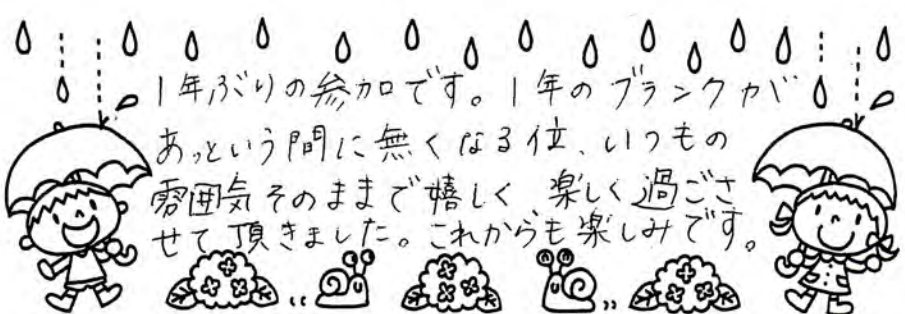 1年ぶりの参加です。1年のブランクが
あっという間に無くなる位、いつもの
雰囲気そのままで嬉しく 楽しく過ごさ
せて頂きました。これからも楽しみです。